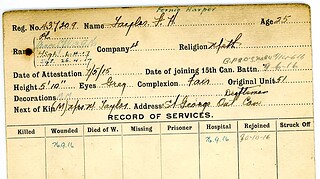 Reg. No. 437309 Name Taylor, F. H. Age 25
Rank Company Religion Meth
Date of Attestation 7/5/15 Date of joining 15th Can. Battn. 9.6.16
Height 5' 10" Eyes Grey Complexion Fair Original Unit 51
Decorations
Next of Kin Taylor Address St George Ont Can
RECORD OF SERVICES.
Killed Wounded Died of W. Missing Prisoner Hospital Rejoined Struck Off
7.9.16 7.9.16 20-10-16